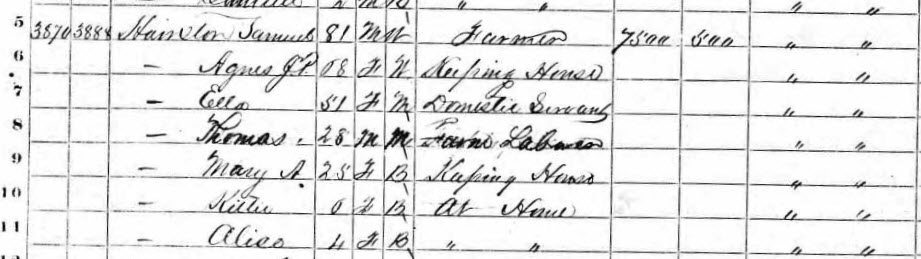 2 M B " " " "
5 3870 3888 Hairston Samuel 81 M W Farmer 7500 500 " "
6 — Agnes J P. 08 F W Keeping House " "
7 — Ella 51 F M Domestic Servant " "
8 — Thomas 28 M M Farm Laborer " "
9 — Mary A. 25 F B Keeping House " "
10 — Kittie 0 F B At Home " "
11 — Alice 4 F B " " " "